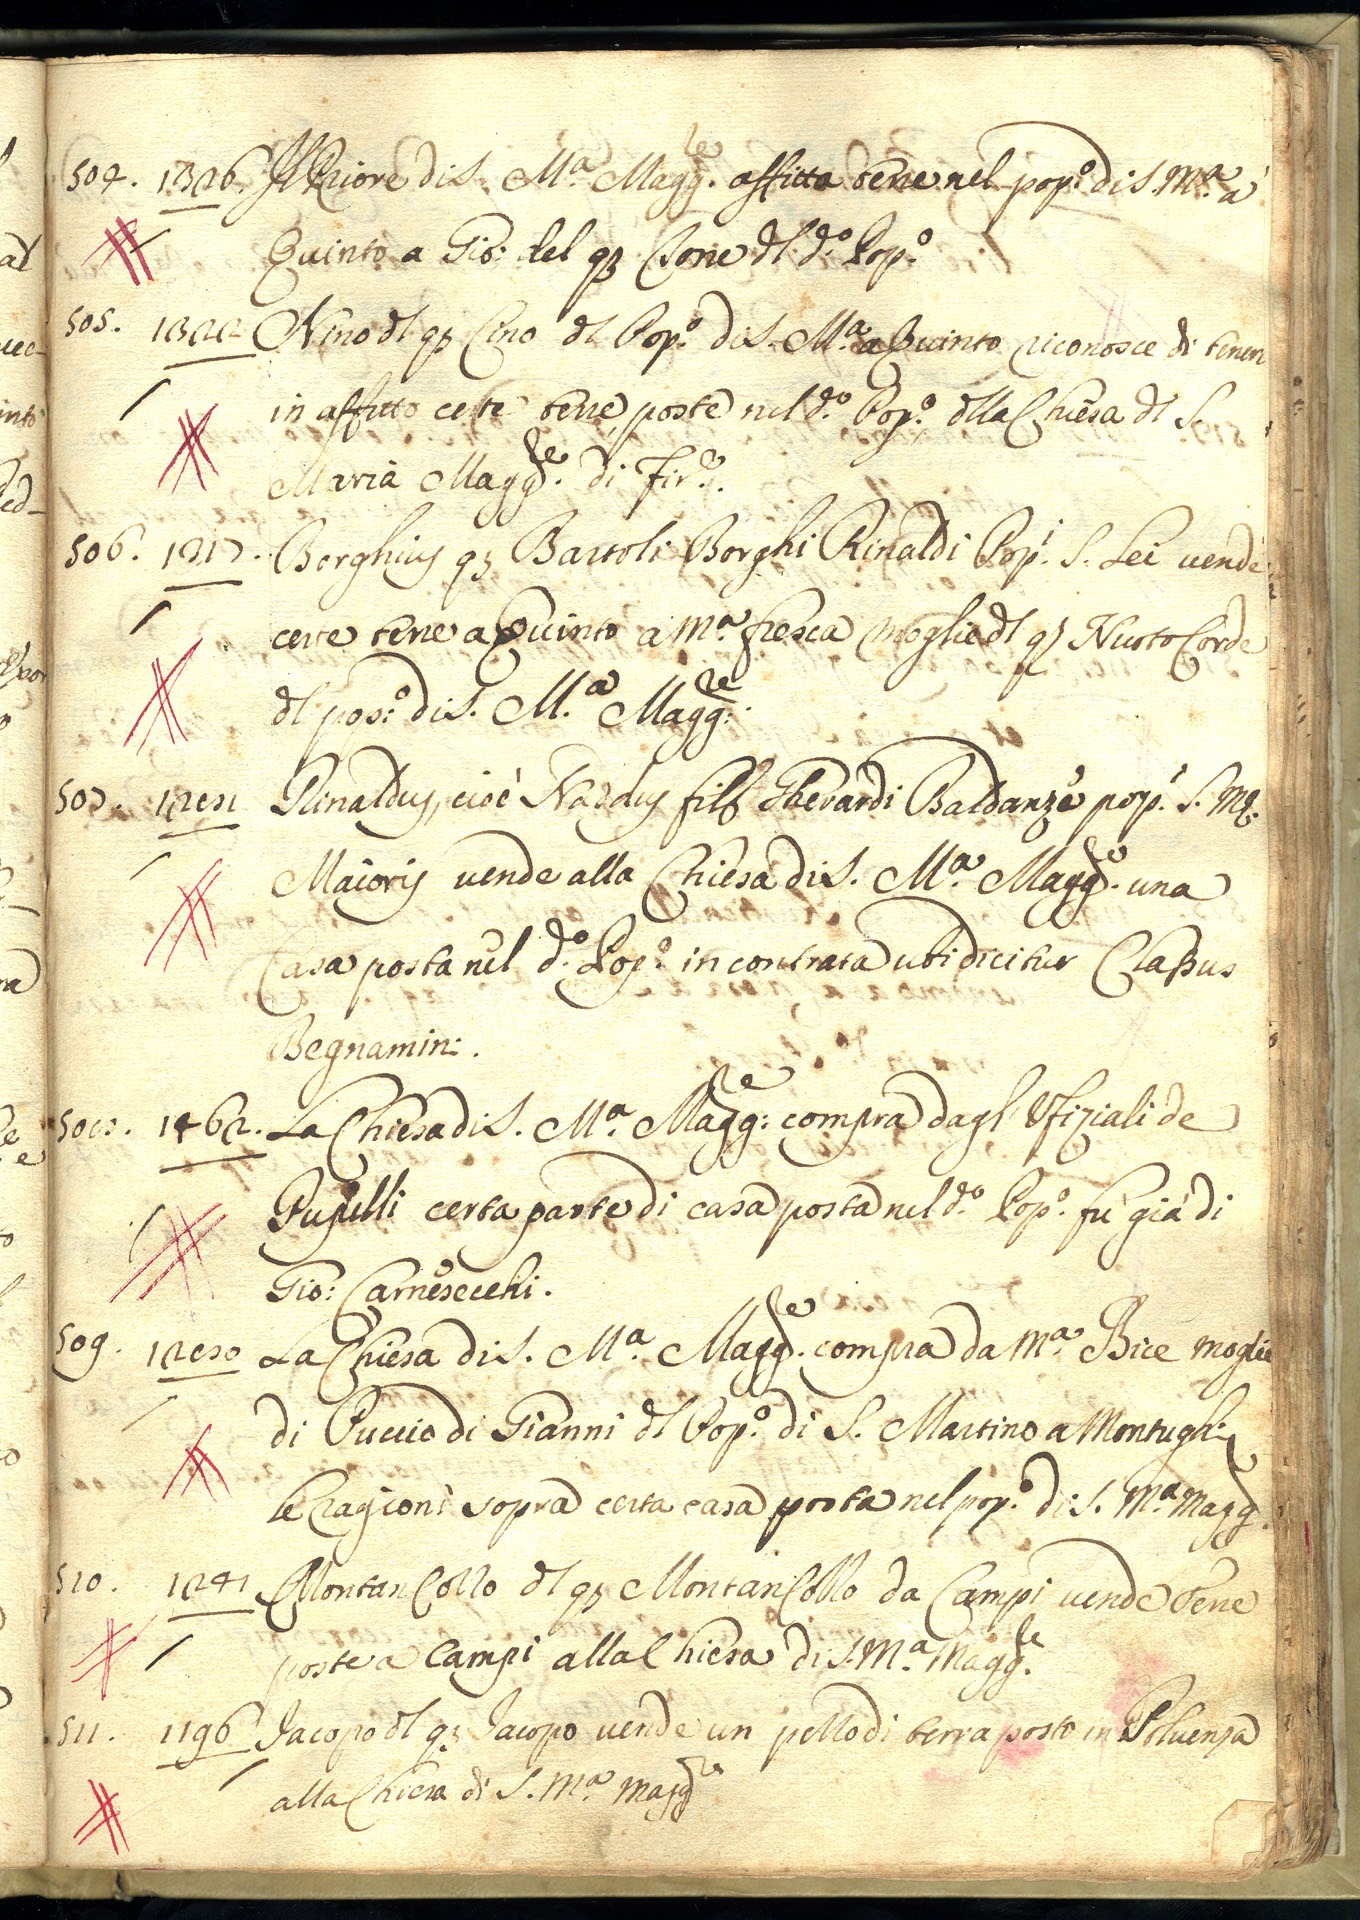 504. 1326. Il Priore di S. M.ª Magg.re affitta terre nel pop.º di S. M.ª a
Quinto a Gio: del qz Cione dl d.º Pop.º
505. 1322 Nino dl qz Cino dl Pop.º di S. M.ª a Quinto riconosce di tener
in affitto certe terre, poste nel d.º Pop.º, dlla Chiesa dl S.
Maria Magg.re di Fir.e.
506. 1217. Borghus qz Bartoli Borghi Rinaldi Pop.i S. Lei vende
certe terre a Quinto a M.ª fresca moglie dl qz Nuto Corde
dl pop.º di S. M.ª Magg.re
507. Rinaldus, cioè Naldus filz Gherardi Baldanze pop.i S. Mę.
Maioris vende alla Chiesa di S. M.ª Magg.re una
Casa posta nel d.º Pop.º in contrata ubi dicitur Classus
Begnamin:.
508. 1462. La Chiesa di S. M.ª Magg:re compra dagl' Ufiziali de
Pupilli certa parte di casa posta nel d.º Pop.º fù già di
Gio: Carnesecchi.
509. La Chiesa di S. M.ª Magg.re compra da M.ª Bice moglie
di Puccio di Gianni dl Pop.º di S. Martino a Montughi
le ragioni sopra certa casa posta nel pop.º di S. M.ª Magg.re
510. 1241 Montancollo dl qz Montancollo da Campi vende terre
poste a Campi alla Chiesa di S. M.ª Magg.re
511. 1196 Jacopo dl qz Jacopo vende un pezzo di terra posto in
alla Chiesa di S. M.ª Magg.re